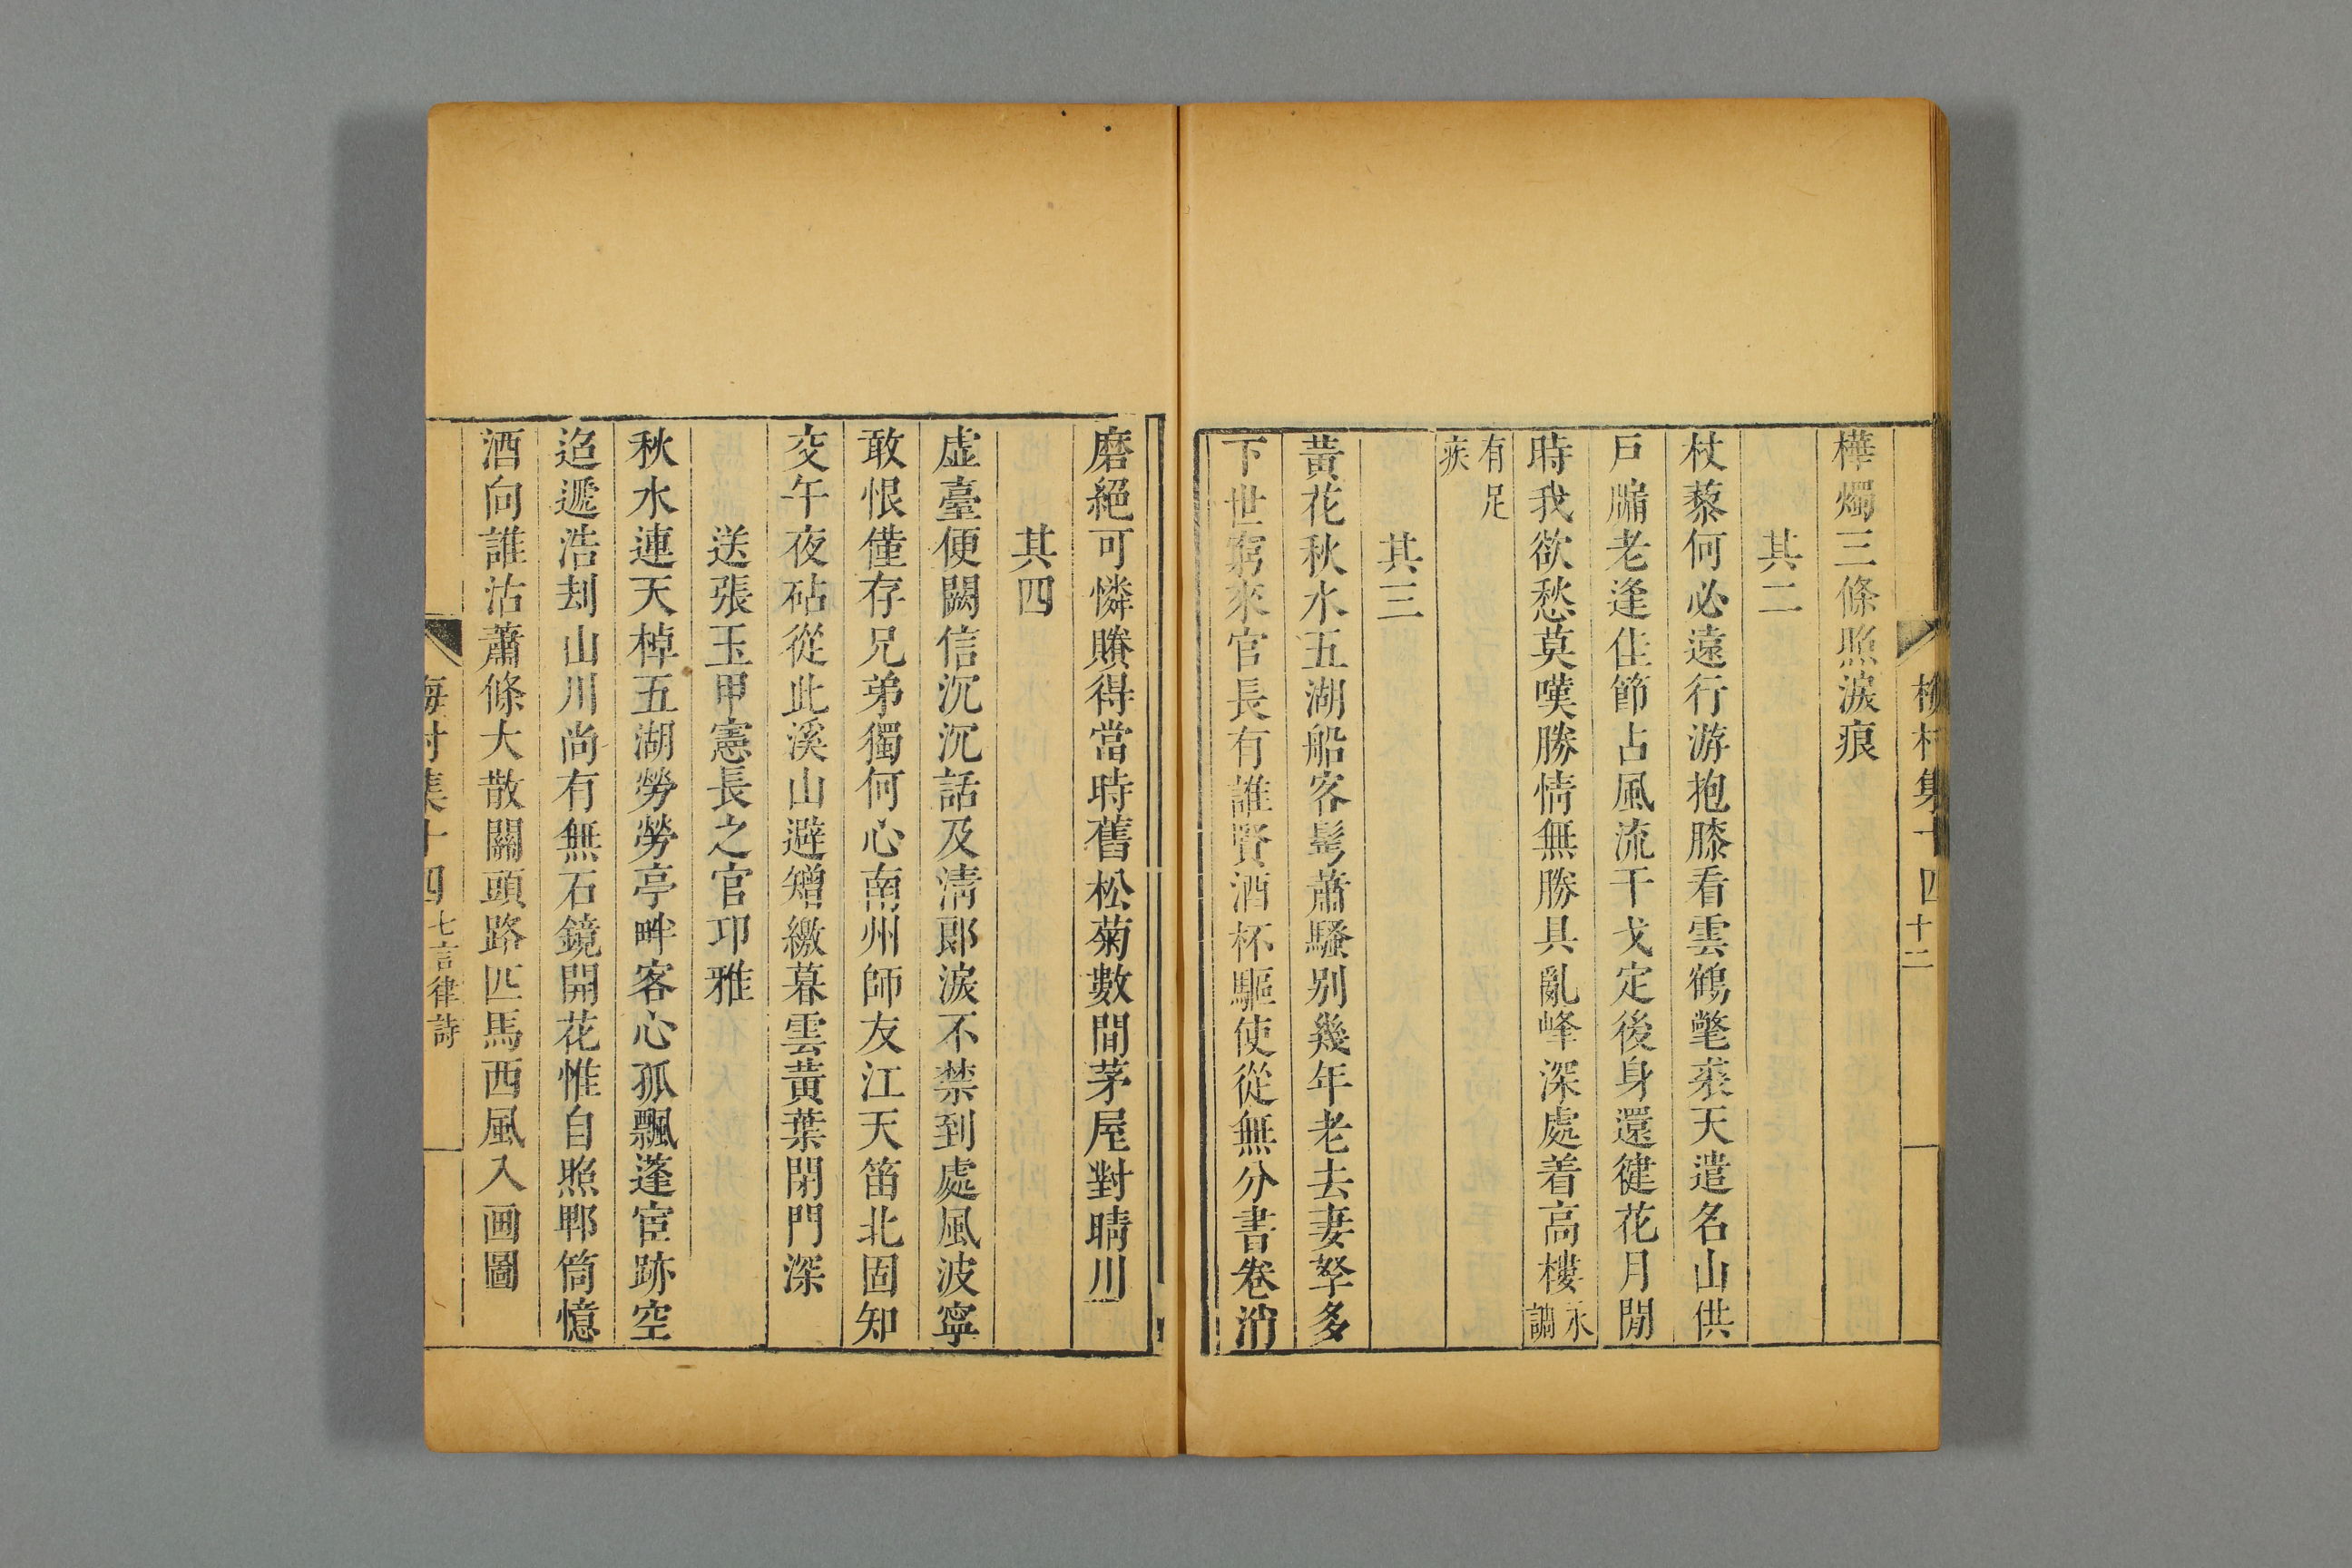 梅村集十四 十二
樺燭三條照淚痕
其二
杖藜何必遠行游抱膝看雲鶴氅裘天遣名山供
戶牖老逢佳節占風流干戈定後身還健花月閒
時我欲愁莫嘆勝情無勝具亂峰深處着高樓永調
有足疾
其三
黃花秋水五湖船客髩蕭騷别幾年老去妻孥多
下世窮來官長有誰賢酒杯驅使從無分書卷消
磨絕可憐賸得當時舊松菊數間茅屋對晴川
其四
虛臺便闕信沉沉話及淸郎淚不禁到處風波寧
敢恨僅存兄弟獨何心南州師友江天笛北固知
交午夜砧從此溪山避矰繳暮雲黃葉閉門深
送張玉甲憲長之官卭雅
秋水連天棹五湖勞勞亭畔客心孤飄蓬宦跡空
迢遞浩刦山川尚有無石鏡開花惟自照郫筒憶
酒向誰沽蕭條大散關頭路匹馬西風入画圖
梅村集十四 七言律詩